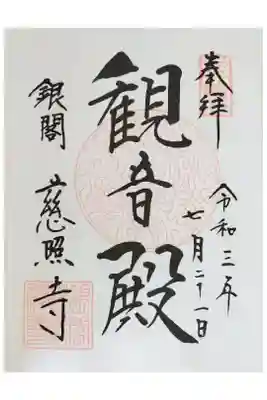 奉拝
令和三年
七月二十一日
観音殿
銀閣
慈照寺